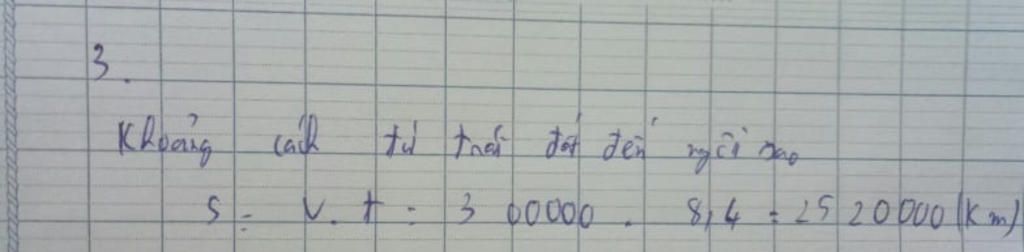 3.
Khoảng cách từ trái đất đến ngôi sao
S = v.t = 300000 . 8,4 = 2520000 (km)